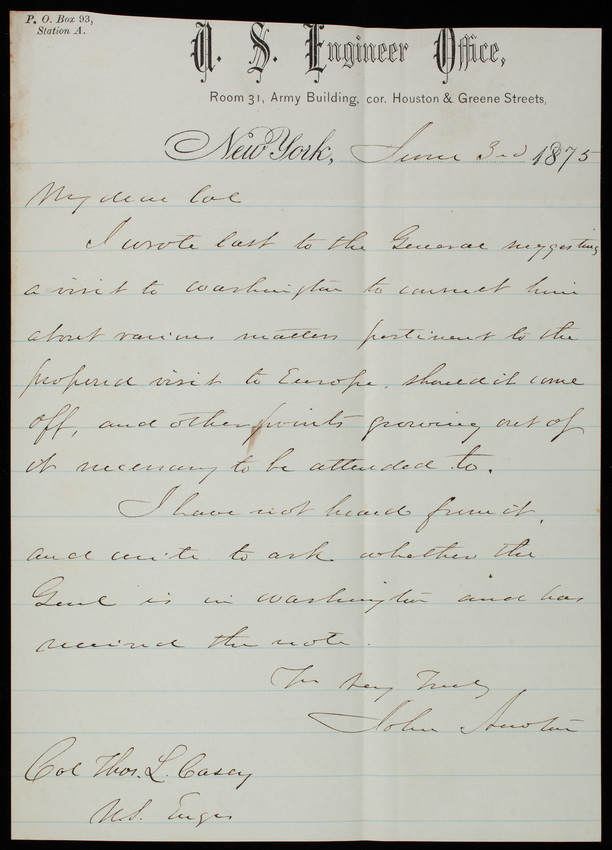 P. O. Box 93,
Station A.
U. S. Engineer Office,
Room 31, Army Building, cor. Houston & Greene Streets,
New York, June 3rd 1875
My dear Col
I wrote last to the General suggesting
a visit to Washington to consult him
about various matters pertinent to the
proposed visit to Europe, should it come
off, and other points growing out of
it necessary to be attended to.
I have not heard from it,
and write to ask whether the
Genl is in Washington and has
received the note.
Yrs Very Truly
John Newton
Col Thos. L. Casey
U.S. Engrs